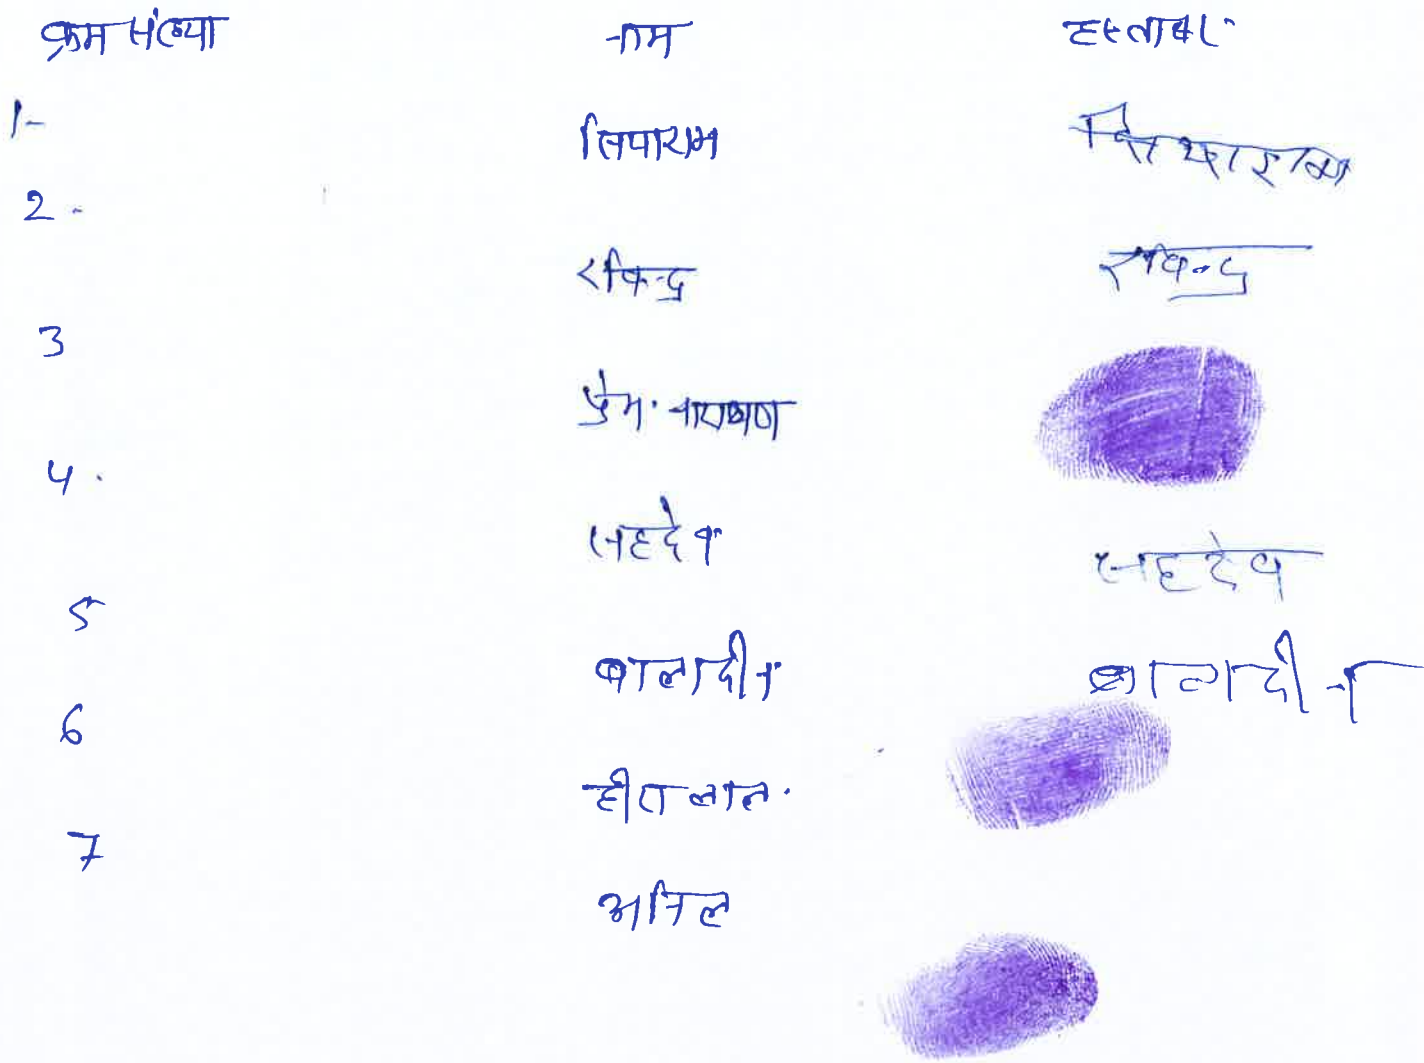 क्रम संख्या नाम हस्ताक्षर
1- सियाराम सियाराम
2- रविन्द्र रविन्द्र
3 प्रेम नारायण
4. सहदेव सहदेव
5 बालादीन बालादीन
6 हीरालाल
7 अनिल